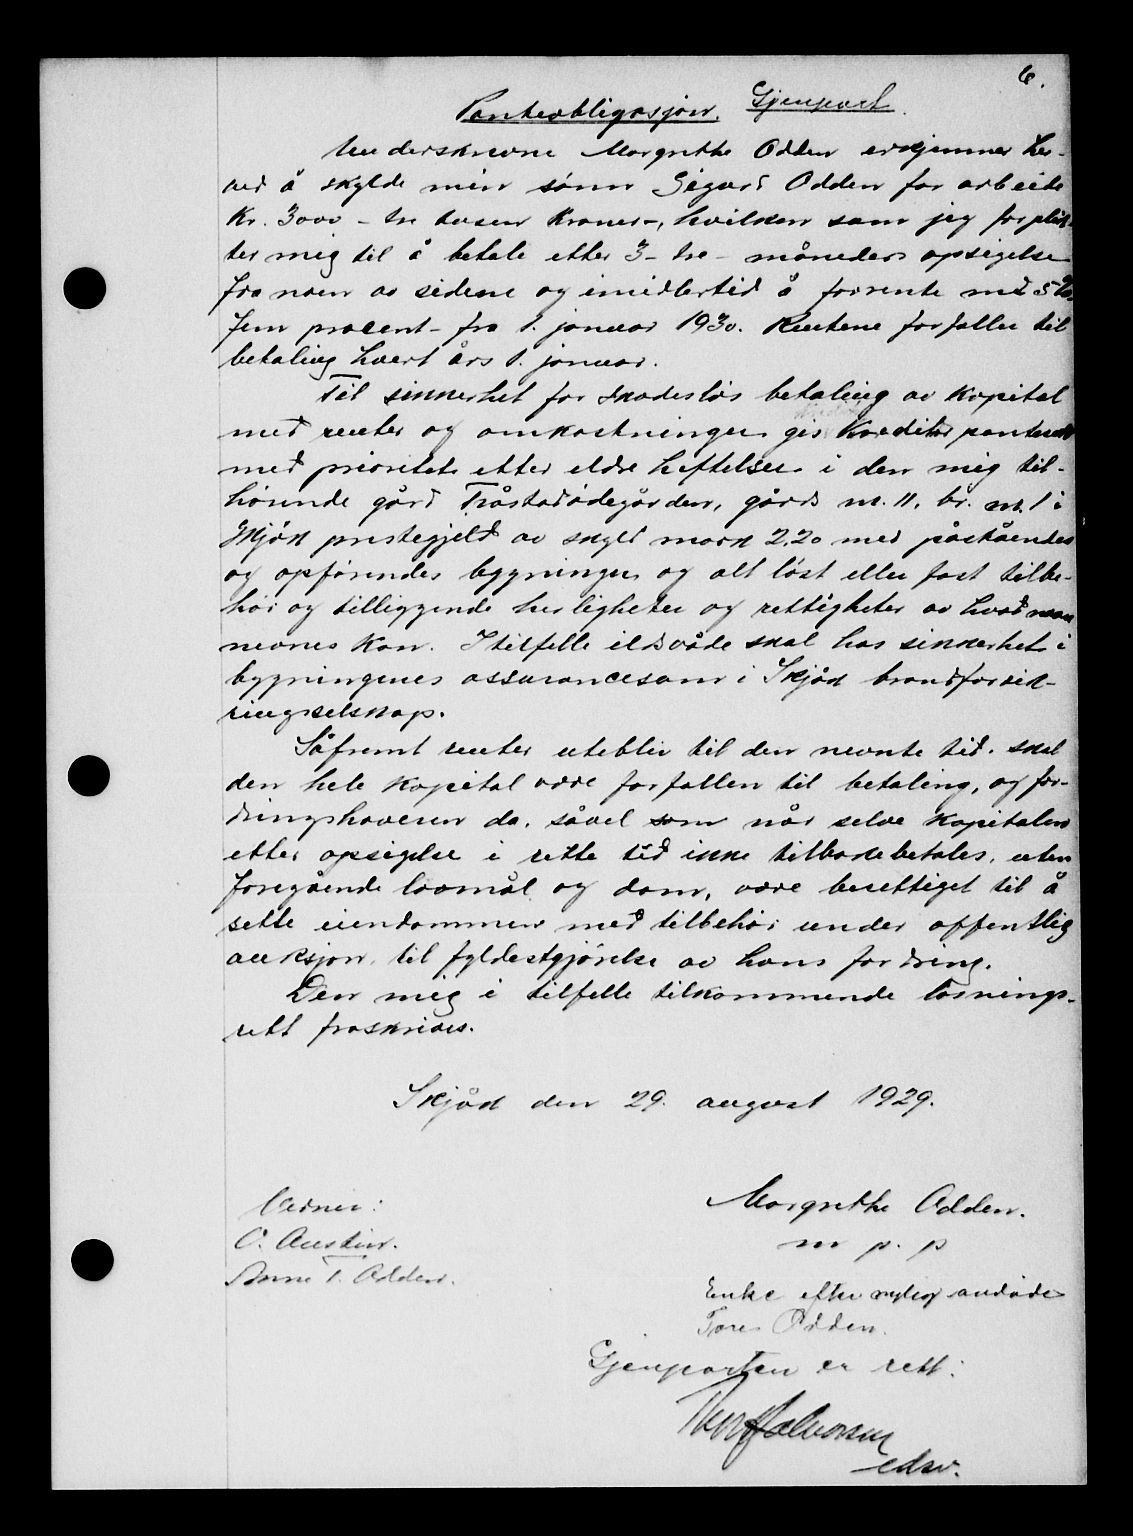 6.
Panteobligasjon. Gjenpart.
Underskrevne Margrethe Odden erkjenner her-
ved å skylde min sønn Sigurd Odden for arbeide
Kr. 3000 - tre tusen kroner -, hvilken sum jeg forplik-
ter mig til å betale etter 3 - tre - måneders opsigelse
fra noen av sidene og imidlertid å forrente med 5 %
fem procent - fra 1. januar 1930. Rentene forfaller til
betaling hvert års 1. januar.
Til sikkerhet for skadesløs betaling av kapital
med renter og omkostninger gis kreditor panterett
med prioritet etter eldre heftelser i den mig til-
hørende gård Tråstadødegården, gårds nr. 11, br. nr. 1 i
Skjåk prestegjeld av skyld mark 2.20 med påståendes
og opførendes bygninger og alt løst eller fast tilbe-
hør og tilliggende herligheter og rettigheter av hvad navn
nevnes kan. I tilfelle ildsvåde skal has sikkerhet i
bygningenes assurancesum i Skjåk brandforsik-
ringsselskap.
Såfremt renter utebliv til den nevnte tid, skal
den hele kapital være forfallen til betaling, og for-
dringshaveren da, såvel som når selve kapitalen
etter opsigelse i rette tid ikke tilbakebetales, uten
foregående lovmål og dom, være berettiget til å
sette eiendommen med tilbehør under offentlig
auksjon til fyldestgjørelse av hans fordring.
Den mig i tilfelle tilkommende løsnings-
rett fraskrives.
Skjåk den 29. august 1929.
Vidner: Margrethe Odden.
O. Austin. m p. p
Anne T. Odden.
Enke efter nylig avdøde
Tore Odden.
Gjenparten er rett:
Halvorsen
edsv.